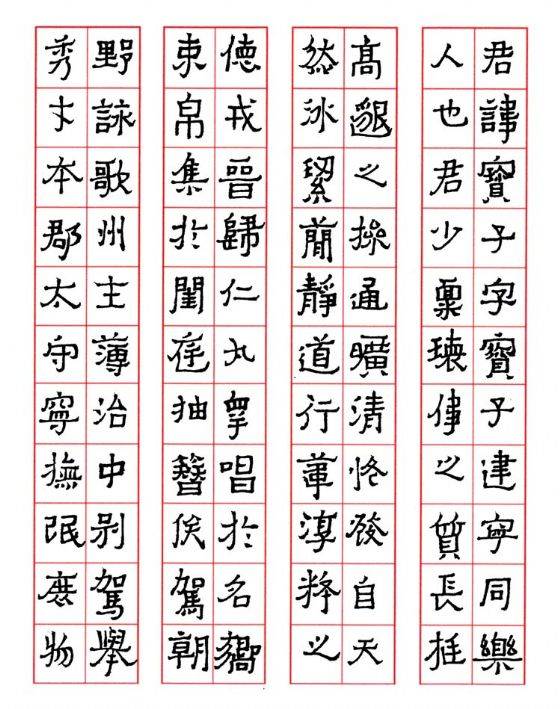 君諱寶子字寶子建寧同樂
人也君少稟瓌偉之質長挺
高邈之操通曠清恪發自天
然冰絜簡靜道行葦淳粹之
德戎晉歸仁九皋唱於名嚮
束帛集於閨庭抽簪俟駕朝
野詠歌州主薄治中別駕舉
秀才本郡太守寧撫氓庶物